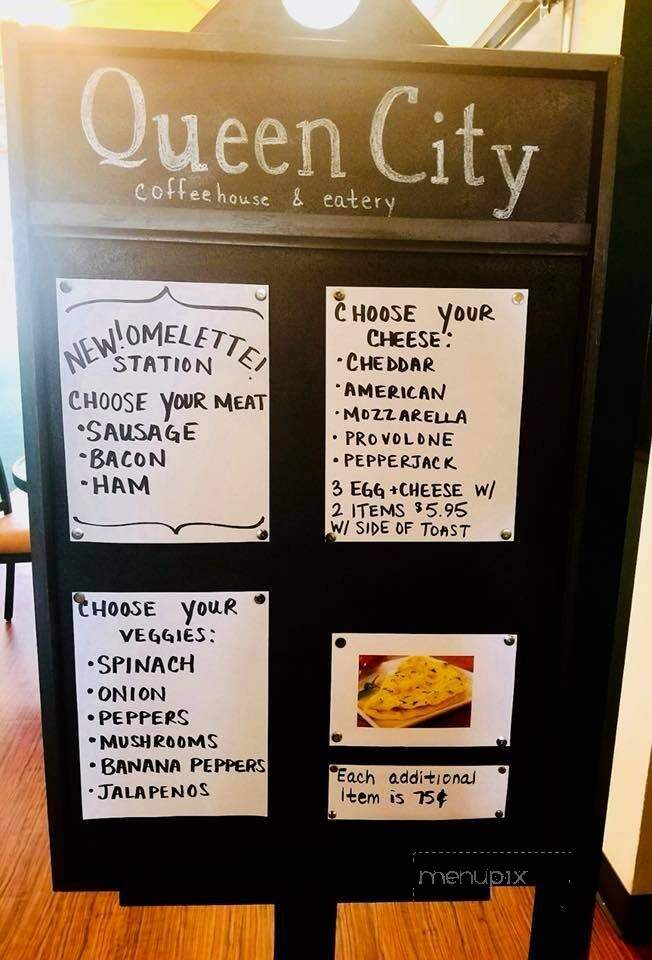 Queen City
coffeehouse & eatery
NEW! OMELETTE!
STATION
CHOOSE YOUR MEAT
•SAUSAGE
•BACON
•HAM
CHOOSE YOUR
CHEESE:
•CHEDDAR
•AMERICAN
•MOZZARELLA
•PROVOLONE
•PEPPERJACK
3 EGG +CHEESE W/
2 ITEMS $5.95
W/ SIDE OF TOAST
CHOOSE YOUR
VEGGIES:
•SPINACH
•ONION
•PEPPERS
•MUSHROOMS
•BANANA PEPPERS
•JALAPENOS
Each additional
Item is 75¢
menupix